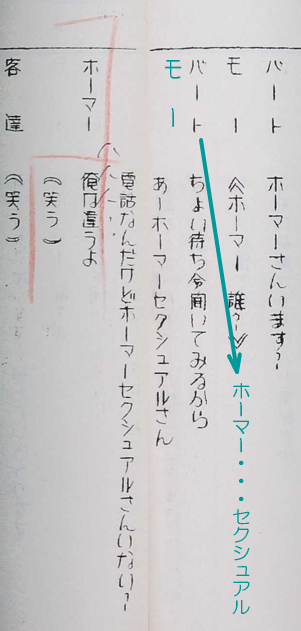 バート　ホーマーさんいます？
モー　《ホーマー　誰？》
ホーマー・・・セクシュアル
バート　ちょい待ち今聞いてみるから
モー　あーホーマーセクシュアルさん
電話なんだけどホーマーセクシュアルさんいない？
ホーマー　俺は違うよ
（笑う）
客達　（笑う）